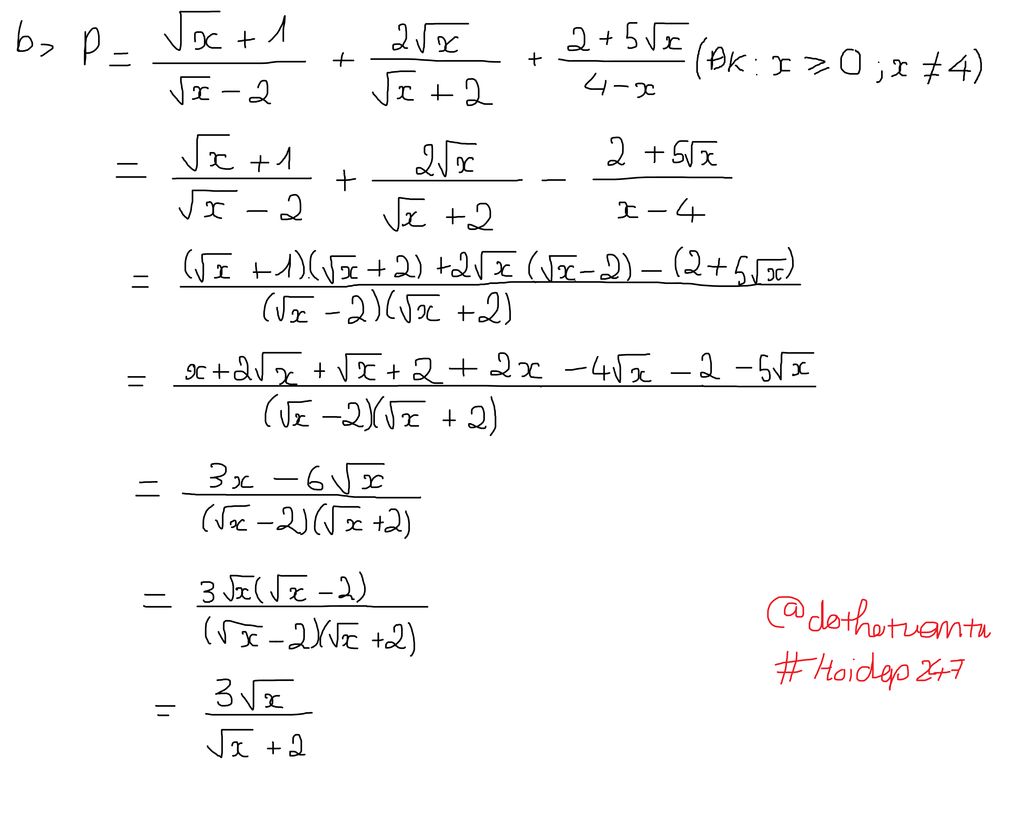 b> P = \frac{\sqrt{x} + 1}{\sqrt{x} - 2} + \frac{2\sqrt{x}}{\sqrt{x} + 2} + \frac{2 + 5\sqrt{x}}{4 - x} (ĐK: x ≥ 0 ; x ≠ 4)
= \frac{\sqrt{x} + 1}{\sqrt{x} - 2} + \frac{2\sqrt{x}}{\sqrt{x} + 2} - \frac{2 + 5\sqrt{x}}{x - 4}
= \frac{(\sqrt{x} + 1).(\sqrt{x} + 2) + 2\sqrt{x}(\sqrt{x} - 2) - (2 + 5\sqrt{x})}{(\sqrt{x} - 2)(\sqrt{x} + 2)}
= \frac{x + 2\sqrt{x} + \sqrt{x} + 2 + 2x - 4\sqrt{x} - 2 - 5\sqrt{x}}{(\sqrt{x} - 2)(\sqrt{x} + 2)}
= \frac{3x - 6\sqrt{x}}{(\sqrt{x} - 2)(\sqrt{x} + 2)}
= \frac{3\sqrt{x}(\sqrt{x} - 2)}{(\sqrt{x} - 2)(\sqrt{x} + 2)}
= \frac{3\sqrt{x}}{\sqrt{x} + 2}
#Hoidap247